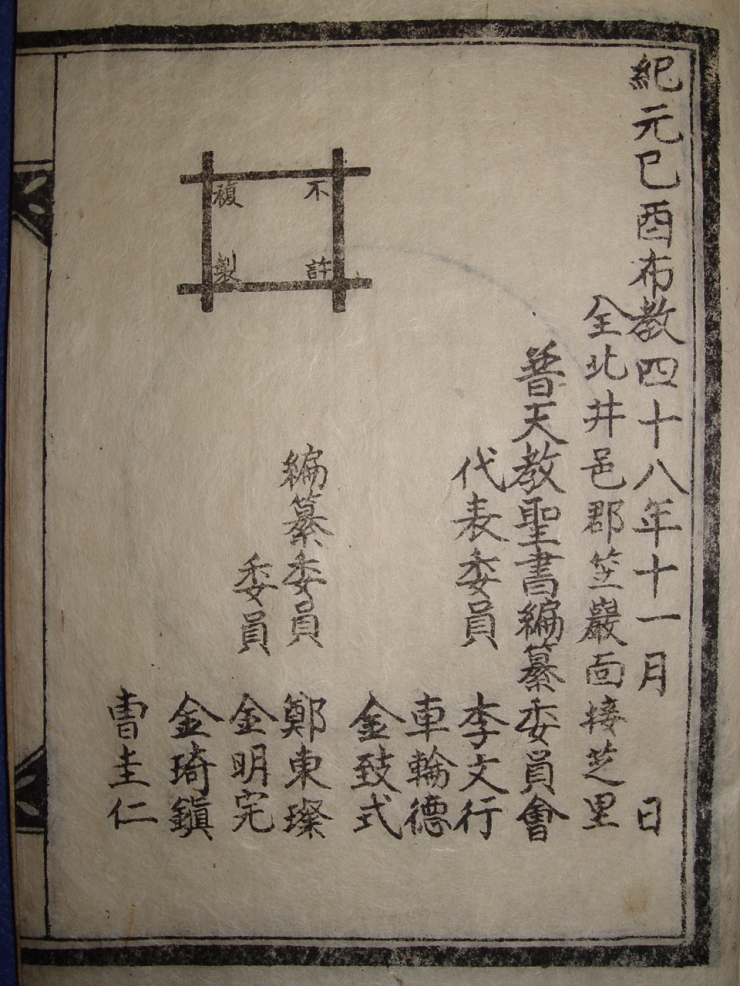 紀元己酉布教四十八年十一月 日
全北井邑郡笠巖面接芝里
普天教聖書編纂委員會
代表委員 李文行
車輪德
金致式
編纂委員 鄭東璨
委員 金明完
金琦鎭
曺圭仁
不許
複製